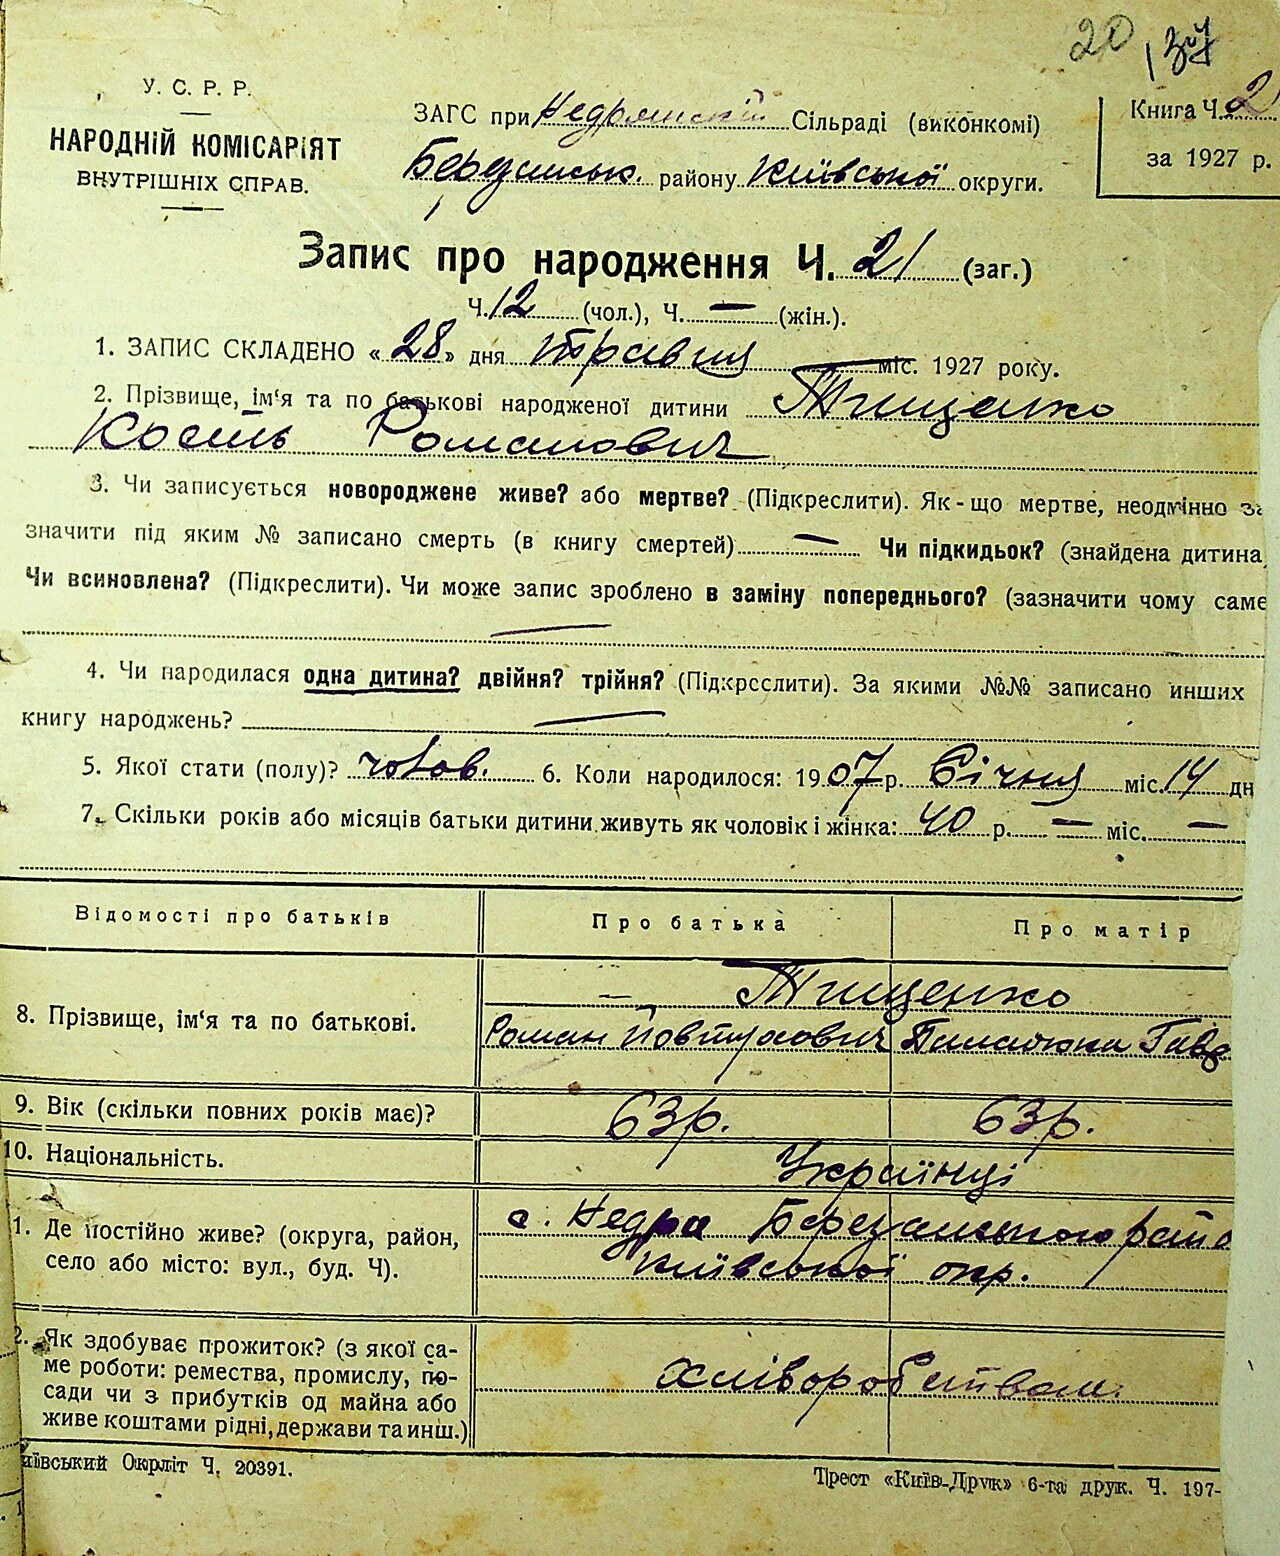 20
У. С. Р. Р.
НАРОДНІЙ КОМІСАРІЯТ
ВНУТРІШНІХ СПРАВ.
ЗАГС при Недрянській Сільраді (виконкомі)
Березансько. району Київської округи.
Книга Ч. 2
за 1927 р.
Запис про народження Ч. 21 (заг.)
Ч. 12 (чол.), Ч. — (жін.).
1. ЗАПИС СКЛАДЕНО «28» дня травня міс. 1927 року.
2. Прізвище, ім'я та по батькові народженої дитини Тищенко
Кость Романович
3. Чи записується новороджене живе? або мертве? (Підкреслити). Як-що мертве, неодмінно за
значити під яким № записано смерть (в книгу смертей) — Чи підкидьок? (знайдена дитина
Чи всиновлена? (Підкреслити). Чи може запис зроблено в заміну попереднього? (зазначити чому саме
—
4. Чи народилася одна дитина? двійня? трійня? (Підкреслити). За якими №№ записано инших
книгу народжень? —
5. Якої стати (полу)? чолов. 6. Коли народилося: 1907 р. Січня міс. 14 дн
7. Скільки років або місяців батьки дитини живуть як чоловік і жінка: 40 р. — міс. —
Відомості про батьків Про батька Про матір
— Тищенко
8. Прізвище, ім'я та по батькові.
Роман Йовтухович Гавр
9. Вік (скільки повних років має)? 63 р. 63 р.
10. Національність. Українці
1. Де постійно живе? (округа, район, с. Недра Березанського райо
село або місто: вул., буд. Ч). Київської окр.
2. Як здобуває прожиток? (з якої са-
ме роботи: ремества, промислу, по-
сади чи з прибутків од майна або
живе коштами рідні, держави та инш.)
хліборобством.
иївський Окрліт Ч. 20391.
Трест «Київ-Друк» 6-та друк. Ч. 197-